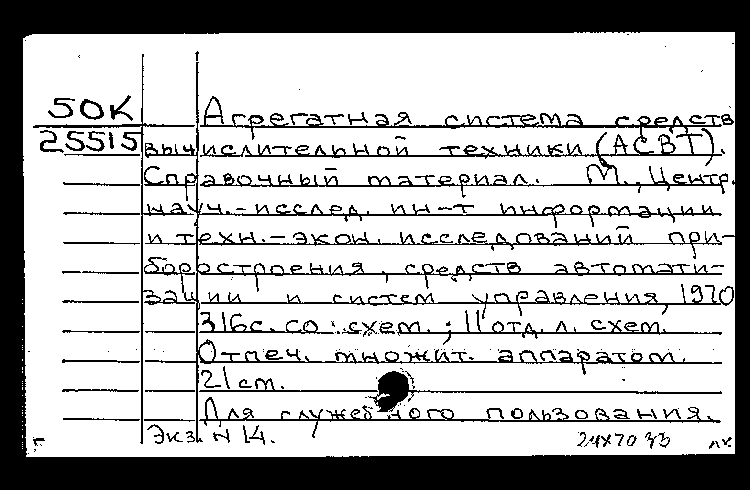 50К
25515
Агрегатная система средств
вычислительной техники (АСВТ).
Справочный материал. М., Центр.
науч.-исслед. ин-т информации
и техн.-экон. исследований при-
боростроения, средств автомати-
зации и систем управления, 1970
316с. со схем.; 11 отд. л. схем.
Отпеч. множит. аппаратом.
21 см.
Для служебного пользования.
Экз. N 14.